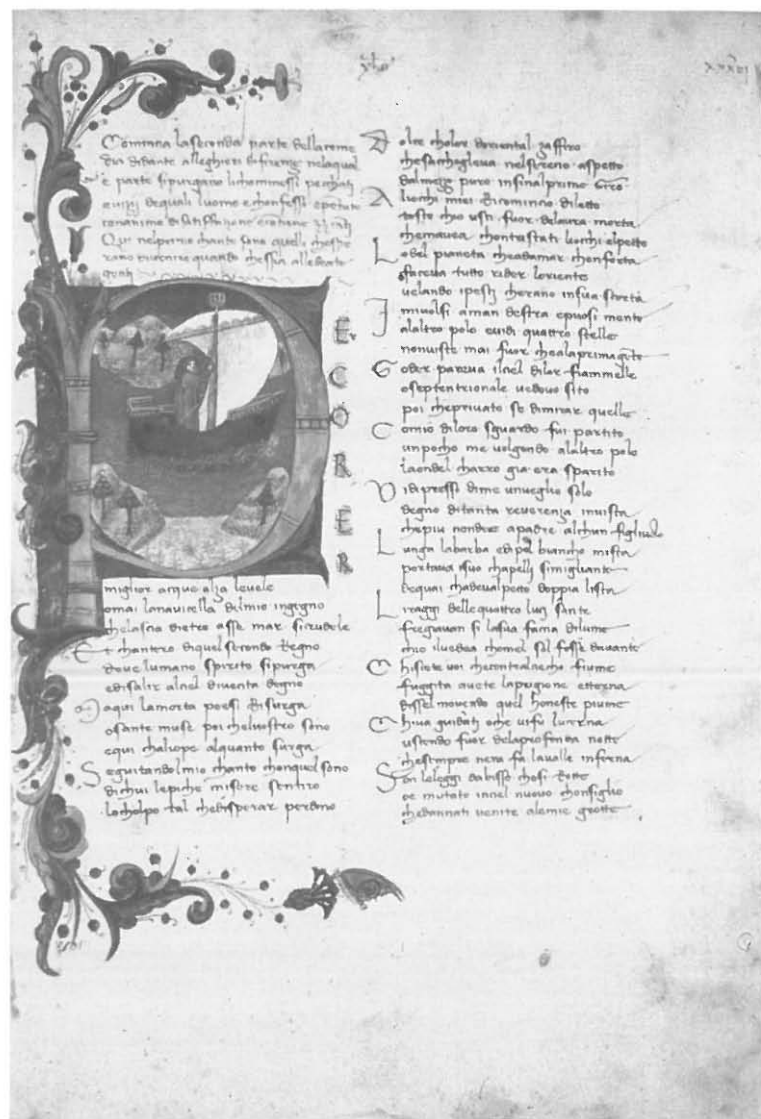 Comincia laseconda parte dellacome
dia didante alleghieri difirenze nelaqual
e parte sipurgano lichommessi pechati
dequali luomo e chonfesso
conanimo di
Qui nelprimo chanto sono quelli chespe
rano divenire quando chessia allebeate
genti
P
Er
C
O
R
E
R
miglior acque alza levele
omai lanavicella delmio ingegno
chelascia dietro asse mar sicrudele
Et chantero diquel secondo Regno
dove lumano spirito sipurga
edisalir alciel diventa degno
Maqui lamorta poesi Risurga
osante muse poi chelvostro sono
equi chaliope alquanto surga
Seguitandolmio chanto chonquel sono
dichui lepiche misere sentiro
locholpo tal chedisperar perdono
Dolce cholor doriental zaffiro
chesachoglieva nelsereno aspetto
dalmezo puro infinalprimo Giro
Aliochi miei Ricomincio diletto
tosto chio usci fuor delaura morta
chemavea chontristati liochi elpetto
Lobel pianeta cheadamar chonforta
faceva tutto rider loriente
velando ipesci cherano insua scorta
Imivolsi aman destra eposi mente
alaltro polo evidi quattro stelle
nonviste mai fuor chealaprimagente
Goder pareva ilciel dilor fiammelle
oseptentrionale vedovo sito
poi cheprivato se dimirar quelle
Comio diloro sguardo fui partito
unpocho me volgendo alaltro polo
laondel charro gia era sparito
Vidi presso dime unveglio solo
degno ditanta reverenza invista
chepiu nondee apadre alchun figliuolo
Lunga labarba edipel biancho mista
portava isuo chapelli simigliante
dequai chadevalpetto doppia lista
Liraggi dellequattro luci sante
fregiavan si lasua facia dilume
chio ilvedea chomel sol fosse davante
Chisiete voi checontralciecho fiume
fuggita avete lapregione etterna
dissel movendo quel honeste piume
Chiva guidati oche vifu lucerna
uscendo fuor delaprofonda notte
chesempre nera fa lavalle inferna
Son leleggi dabisso chosi Rotte
oe mutato inciel nuovo chonsiglio
chedannati venite alemie grotte